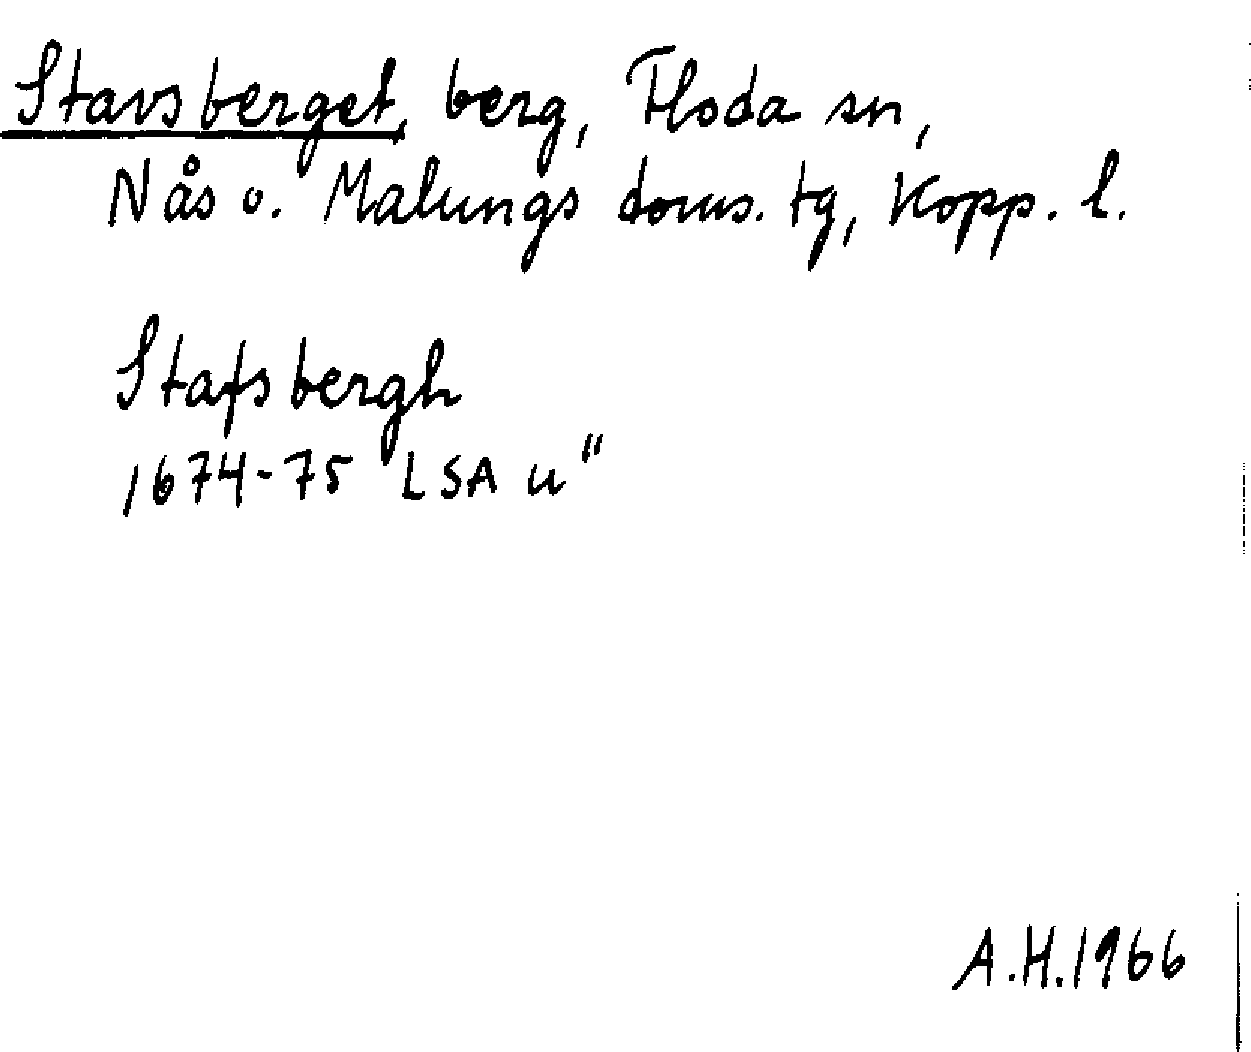 Stavsberget, berg, Floda sn,
Nås o. Malungs doms. tg, Kopp. l.
Stafsbergh
1674-75 LSA u"
A.H.1966